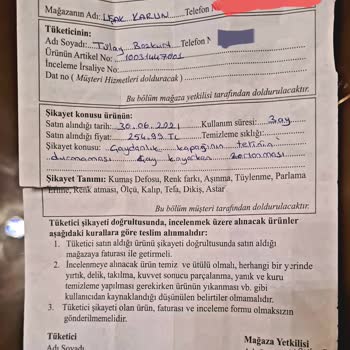 Mağazanın Adı: UŞAK KARUN Telefon N
Tüketicinin:
Adı Soyadı: Tülay Bozkurt Telefon N
Ürünün Artikel No: 10031447001
İnceleme İrsaliye No:
Dat no ( Müşteri Hizmetleri dolduracak )
Bu bölüm mağaza yetkilisi tarafından doldurulacaktır.
Şikayet konusu ürünün:
Satın alındığı tarih: 30.06.2021 Kullanım süresi: 3 ay
Satın alındığı fiyat: 254.99 TL Temizleme sıklığı:
Şikayet konusu: Çaydanlık kapağının tersinin
durmaması Çay koyarken zorlanması
Şikayet Tanımı: Kumaş Defosu, Renk farkı, Aşınma, Tüylenme, Parlama
Erime, Renk atması, Ölçü, Kalıp, Tefa, Dikiş, Astar
Bu bölüm müşteri tarafından doldurulacaktır.
Tüketici şikayeti doğrultusunda, incelenmek üzere alınacak ürünler
aşağıdaki kurallara göre teslim alınmalıdır:
1. Tüketici satın aldığı ürünü şikayeti doğrultusunda satın aldığı
mağazaya faturası ile getirmeli.
2. İncelemeye alınacak ürün temiz ve ütülü olmalı, herhangi bir yerinde
yırtık, delik, takılma, kuvvet sonucu parçalanma, yanık ve kuru
temizleme yapılması gerekirken ürünün yıkanması vb. gibi
kullanıcıdan kaynaklandığı düşünülen belirtiler olmamalıdır.
3. Tüketici şikayeti olan ürün, faturası ve inceleme formu olmaksızın
gönderilmemelidir.
Tüketici Mağaza Yetkilisi
Adı Soyadı